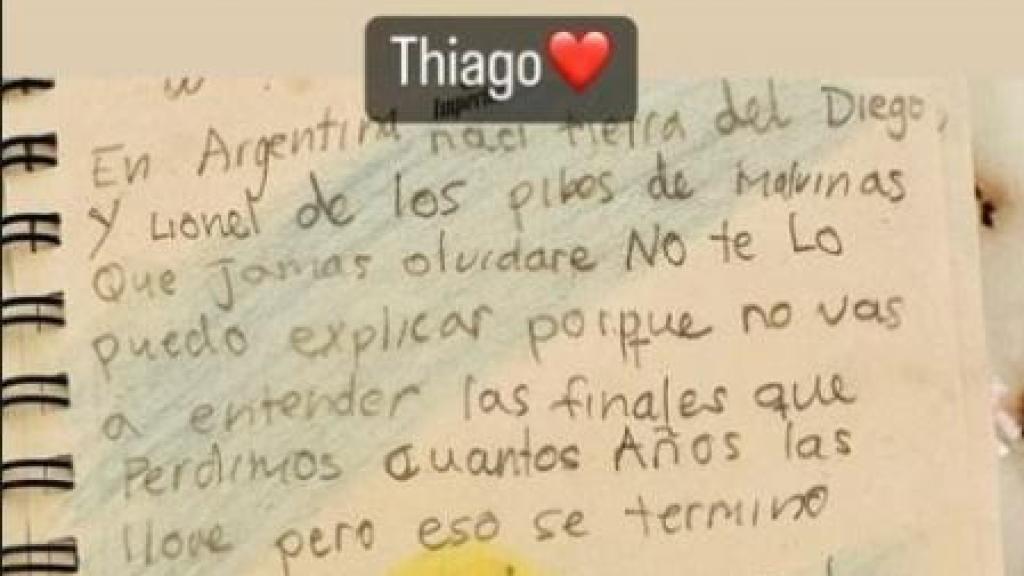 Thiago❤️
En Argentina naci tierra del Diego,
Y Lionel de los pibes de Malvinas
Que jamas olvidare No te Lo
puedo explicar porque no vas
a entender las finales que
Perdimos cuantos Años las
llore pero eso se termino